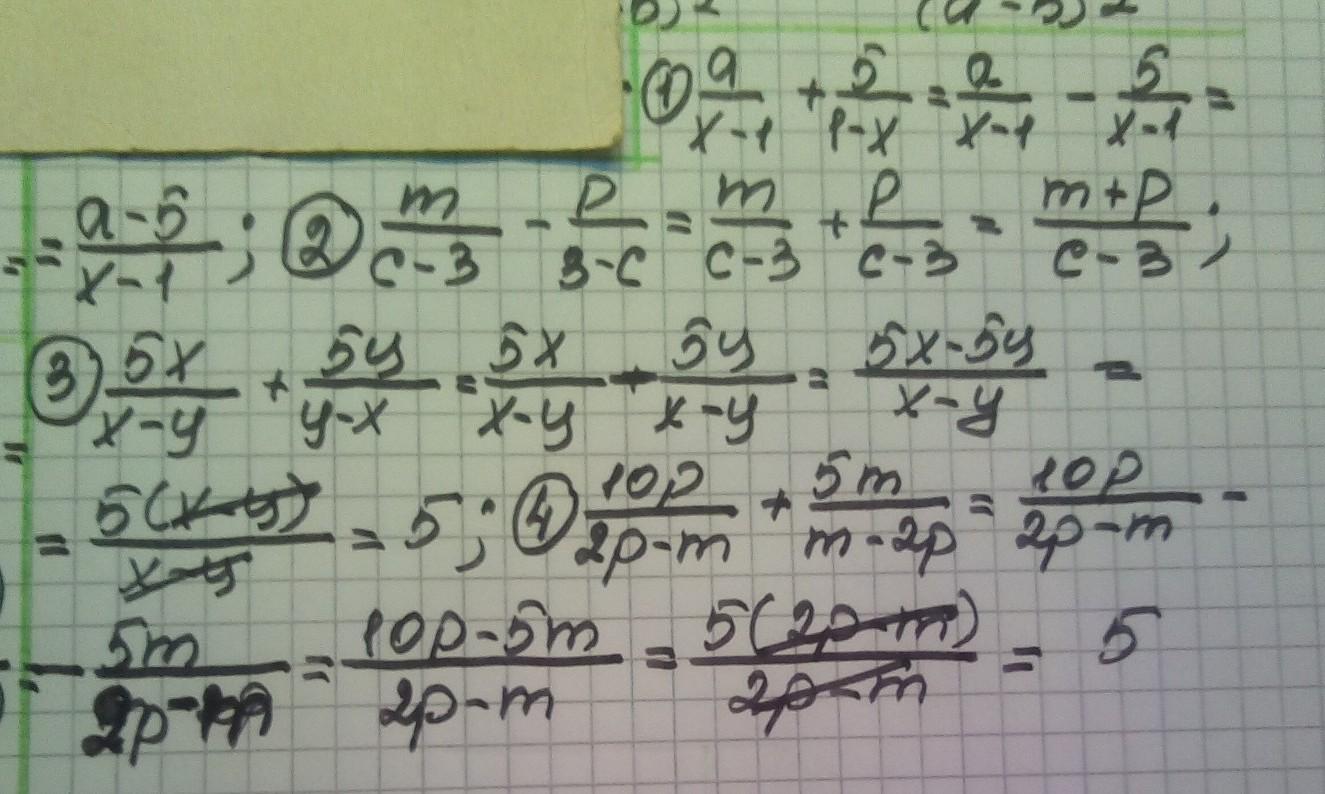 (a-5)2
① a/(x-1) + 5/(1-x) = a/(x-1) - 5/(x-1) =
= (a-5)/(x-1); ② m/(c-3) - p/(3-c) = m/(c-3) + p/(c-3) = (m+p)/(c-3);
③ 5x/(x-y) + 5y/(y-x) = 5x/(x-y) - 5y/(x-y) = (5x-5y)/(x-y) =
= 5(x-y)/(x-y) = 5; ④ 10p/(2p-m) + 5m/(m-2p) = 10p/(2p-m) -
- 5m/(2p-m) = (10p-5m)/(2p-m) = 5(2p-m)/(2p-m) = 5